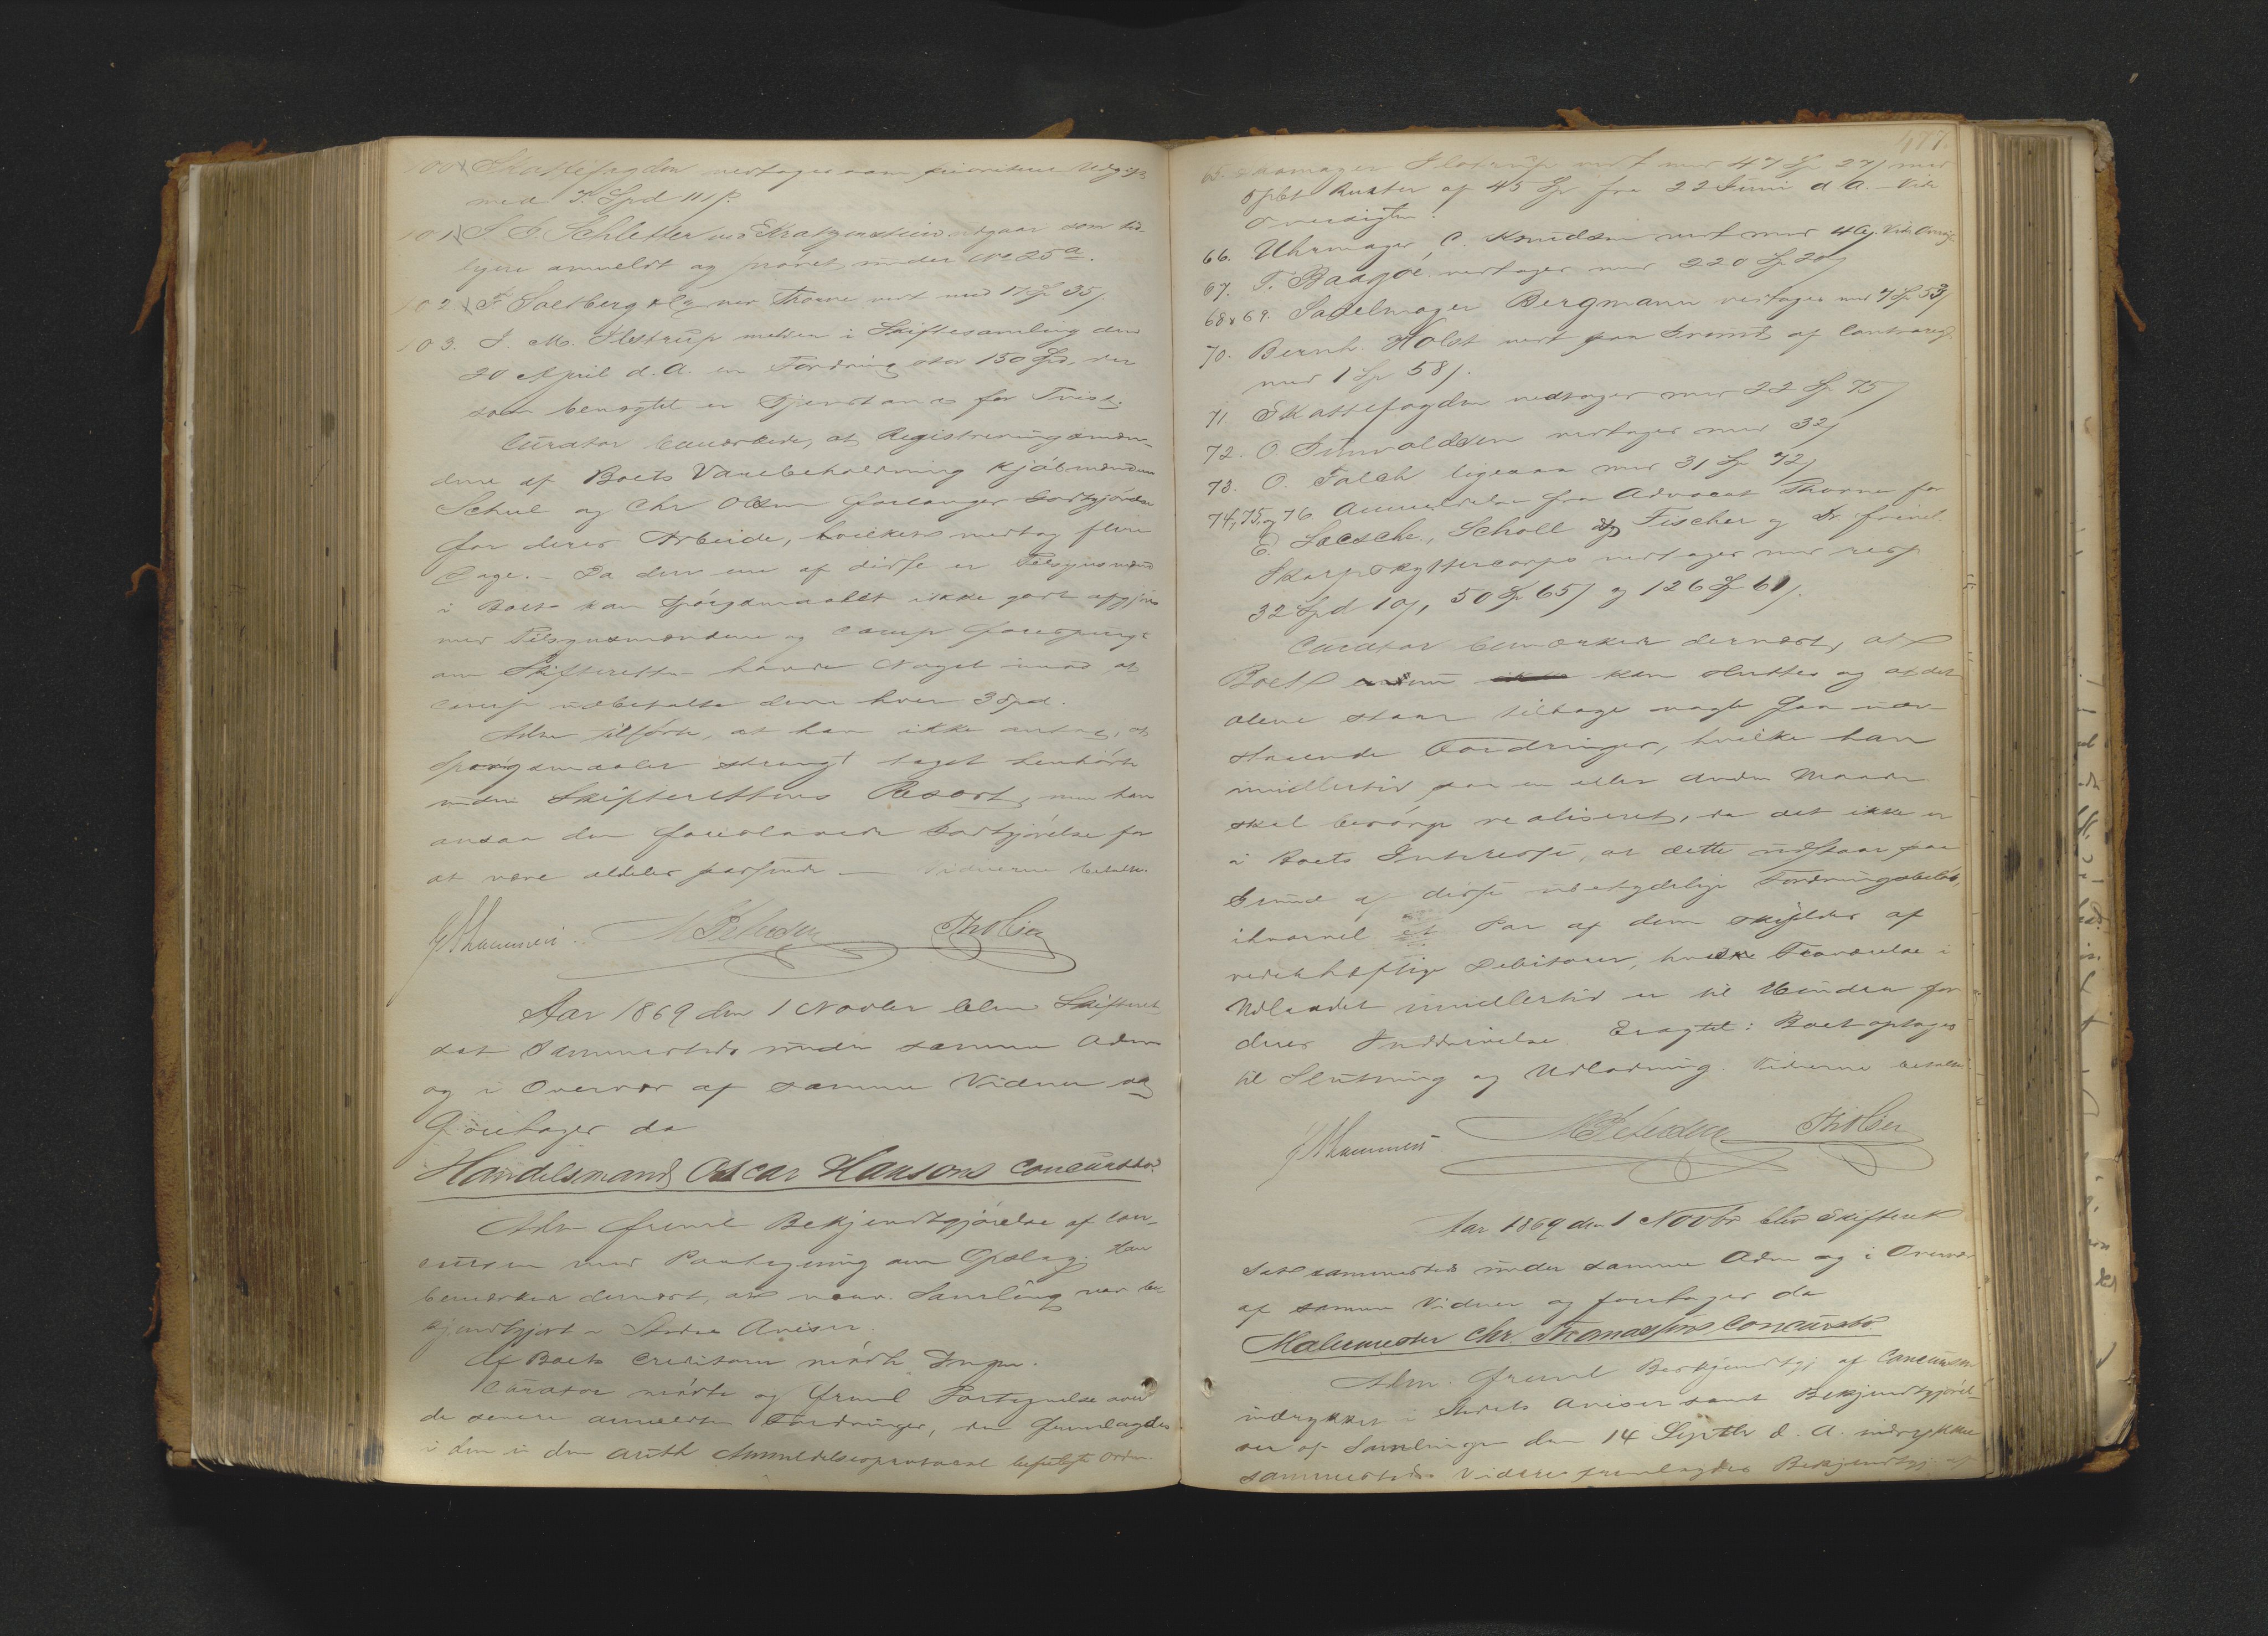 100 Skattefogden vedtages som prioriteret Udgift
med 7 Spd 111 ß.
101 S. E. Schletter ved Kratzenstein udgaar som tid-
ligere anmeldt og prøvet under No 25a.
102 F. Saltberg & Co ved Thorne vedt med 17 Sp 35 ß
103. J. M. Ilstrup meldte i Skiftesamling den
20 April d. A. en Fordring stor 150 Spd, der
som benegtet er Gjenstand for Tvist.
Curator bemærkede, at Registreringsmæn-
dene af Boets Varebeholdning Kjøbmændene
Schul og Chr Olsen forlanger Godtgjørelse
for deres Arbeide, hvilket medtog flere
Dage. – Da den ene af disse er Tilsynsmand
i Boet kan Spørgsmaalet ikke godt afgjøres
med Tilsynsmændene og Comp forespurgte
om Skifteretten havde Noget imod at
Comp udbetalte dem hver 3 Spd.
Adm tilførte, at han ikke antog, at
Spørgsmaalet strengt taget henhørte
under Skifterettens Resort, men han
ansaa den foreslaaede Godtgjørelse for
at være aldeles passende – Vidnerne betalte.
M Pedersen Th Olsen
Aar 1869 den 1 Novber blev Skifteret
sat sammesteds under samme Adm
og i Overvær af samme Vidner og
foretages da
Handelsmand Oscar Hansons Concursbo.
Adm freml Bekjendtgjørelse af Con-
cursen med Paategning om Opslag. Han
bemærkede dernæst, at nærv. Samling var be-
kjendtgjort i Stedets Aviser.
Af Boets Creditorer mødte Ingen.
Curator mødte og freml Fortegnelse over
de senere anmeldte Fordringer, der fremlagdes
i den i den auth Anmeldelsesprotocol befulgte Orden.
477.
65. Skomager Slostrup vedt med 47 Sp 27 ß med
5 pCt Renter af 45 Sp fra 22 Juni d. A. Vide
Oversigten.
66. Uhrmager C. Knudsen vedt med 4 Vide Oversigt
67. T. Baasjoe vedtages med 220 Sp 20 ß
68 & 69. Sadelmager Bergmann vedtages med 7 Sp 53 ß
70. Bernh. Holst vedt paa Grund af Contraregn
med 1 Sp 58 ß.
71 Skattefogden vedtages med 22 Sp 75 ß
72. O Gunvaldsen vedtages med 32 ß
73. O. Falch ligesaa med 31 Sp 72 ß
74, 75 og 76 Anmeldelse fra Advocat Thorne for
E. Saesche, Scholl og Fischer og Dr frivil.
Skarpskyttercorps vedtages med resp
32 Spd 10 ß, 50 Sp 65 ß og 126 Sp 61 ß.
Curator bemærkede dernæst, at
Boet kan sluttes og at det
alene staar tilbage nogle faa ude-
staaende Fordringer, hvilke han
imidlertid paa en eller anden Maade
skal besørge realiseret, da det ikke er
i Boets Interesse, at dette udstaar paa
Grund af disse ubetydelige Fordringsbeløb,
ihvorvel et Par af dem skyldes af
vederhæftige Debitorer, hvis Fraværelse i
Udlandet imidlertid er til Hinder for
deres Inddrivelse. Eragtet: Boet optages
til Slutning og Udlodning. Vidnerne betalte.
M Pedersen Th Olsen
Aar 1869 den 1 Novbr blev Skifteret
sat sammesteds under samme Adm og i Overvær
af samme Vidner og foretages da
Malermester Chr. Thomassens Concursbo
Adm. freml Bekjendtgj af Concursen
indrykket i Stedets Aviser samt Bekjendtgjørel-
sen af Samlingen den 14 Septbr d. A. indrykket
sammesteds Videre fremlagdes Bekjendtgj af